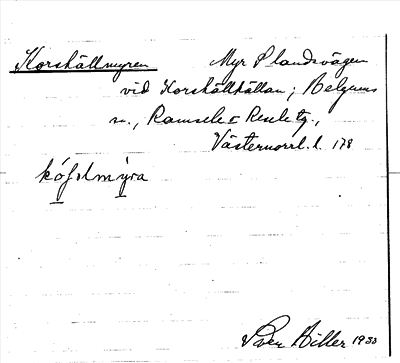 Korshällmyren Myr S landsvägen
vid Korshällkällan; Helgums
sn., Ramsele o Resele tg.,
Västernorrl. l. 178
Sven Hiller 1933